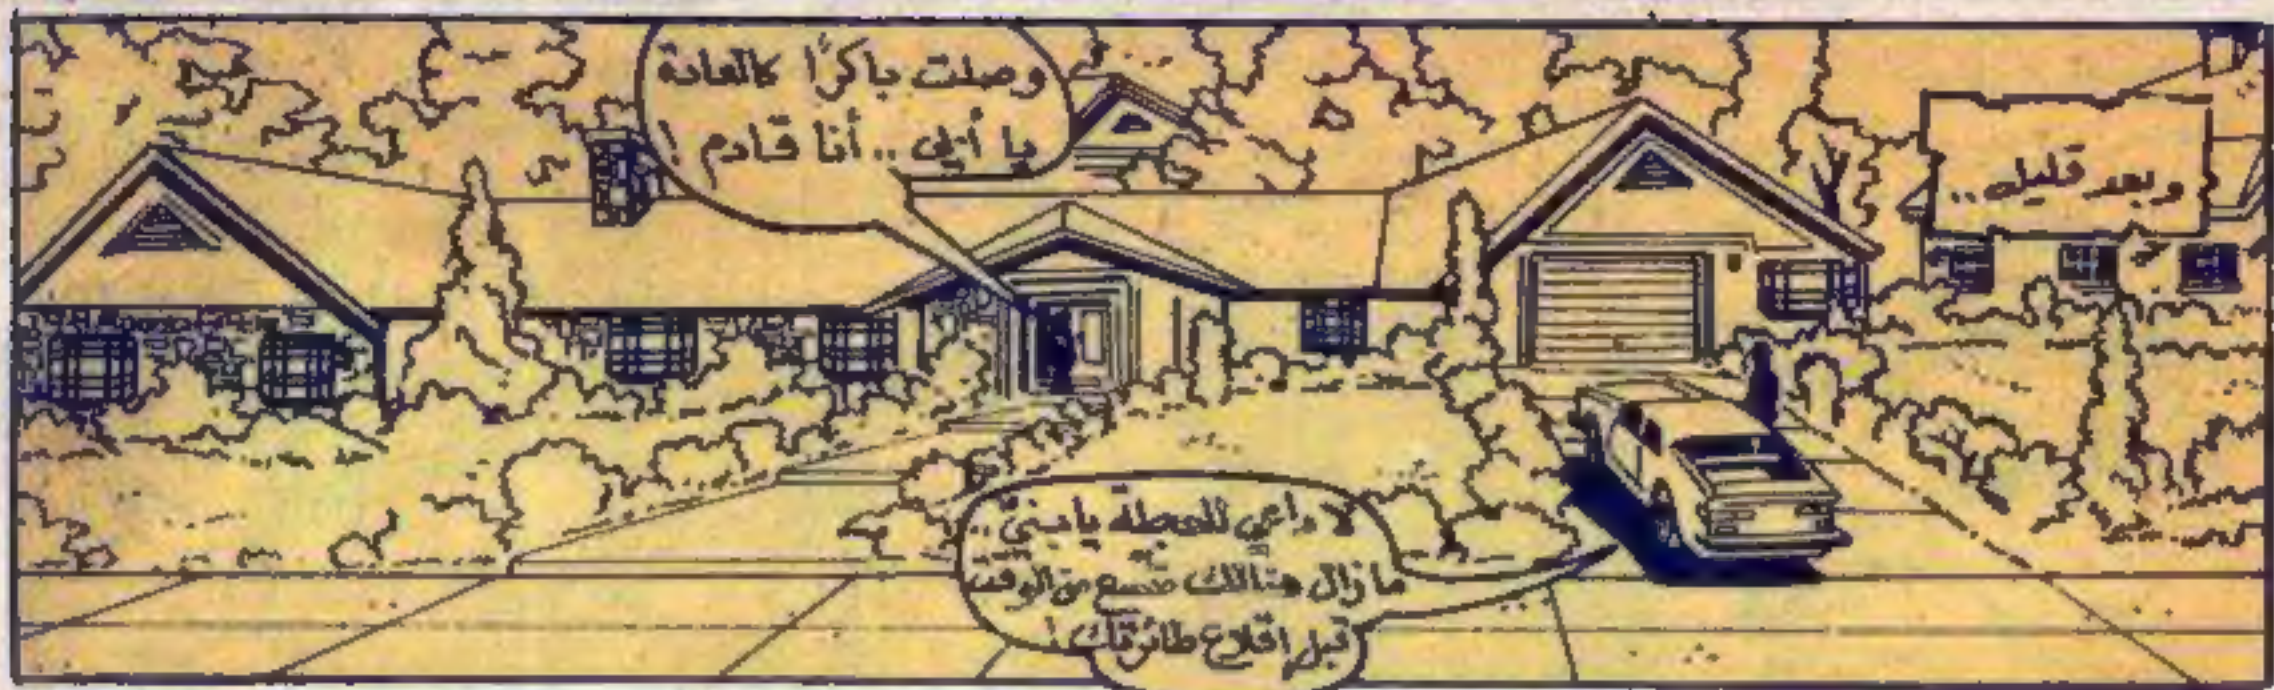 وبعد قليل ..
وصلت باكرًا كالعادة
يا أبي .. أنا قادم !
لا داعي للعجلة يا بني ..
ما زال هنالك متسع من الوقت
قبل إقلاع طائرتك !